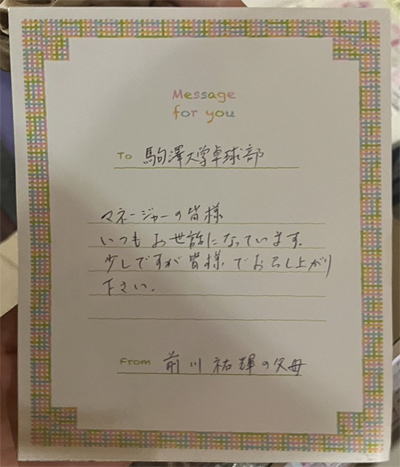 Message
for you
To 駒澤大学卓球部
マネージャーの皆様
いつもお世話になっています。
少しですが皆様でお召し上がり
下さい。
From 前川祐輝の父母